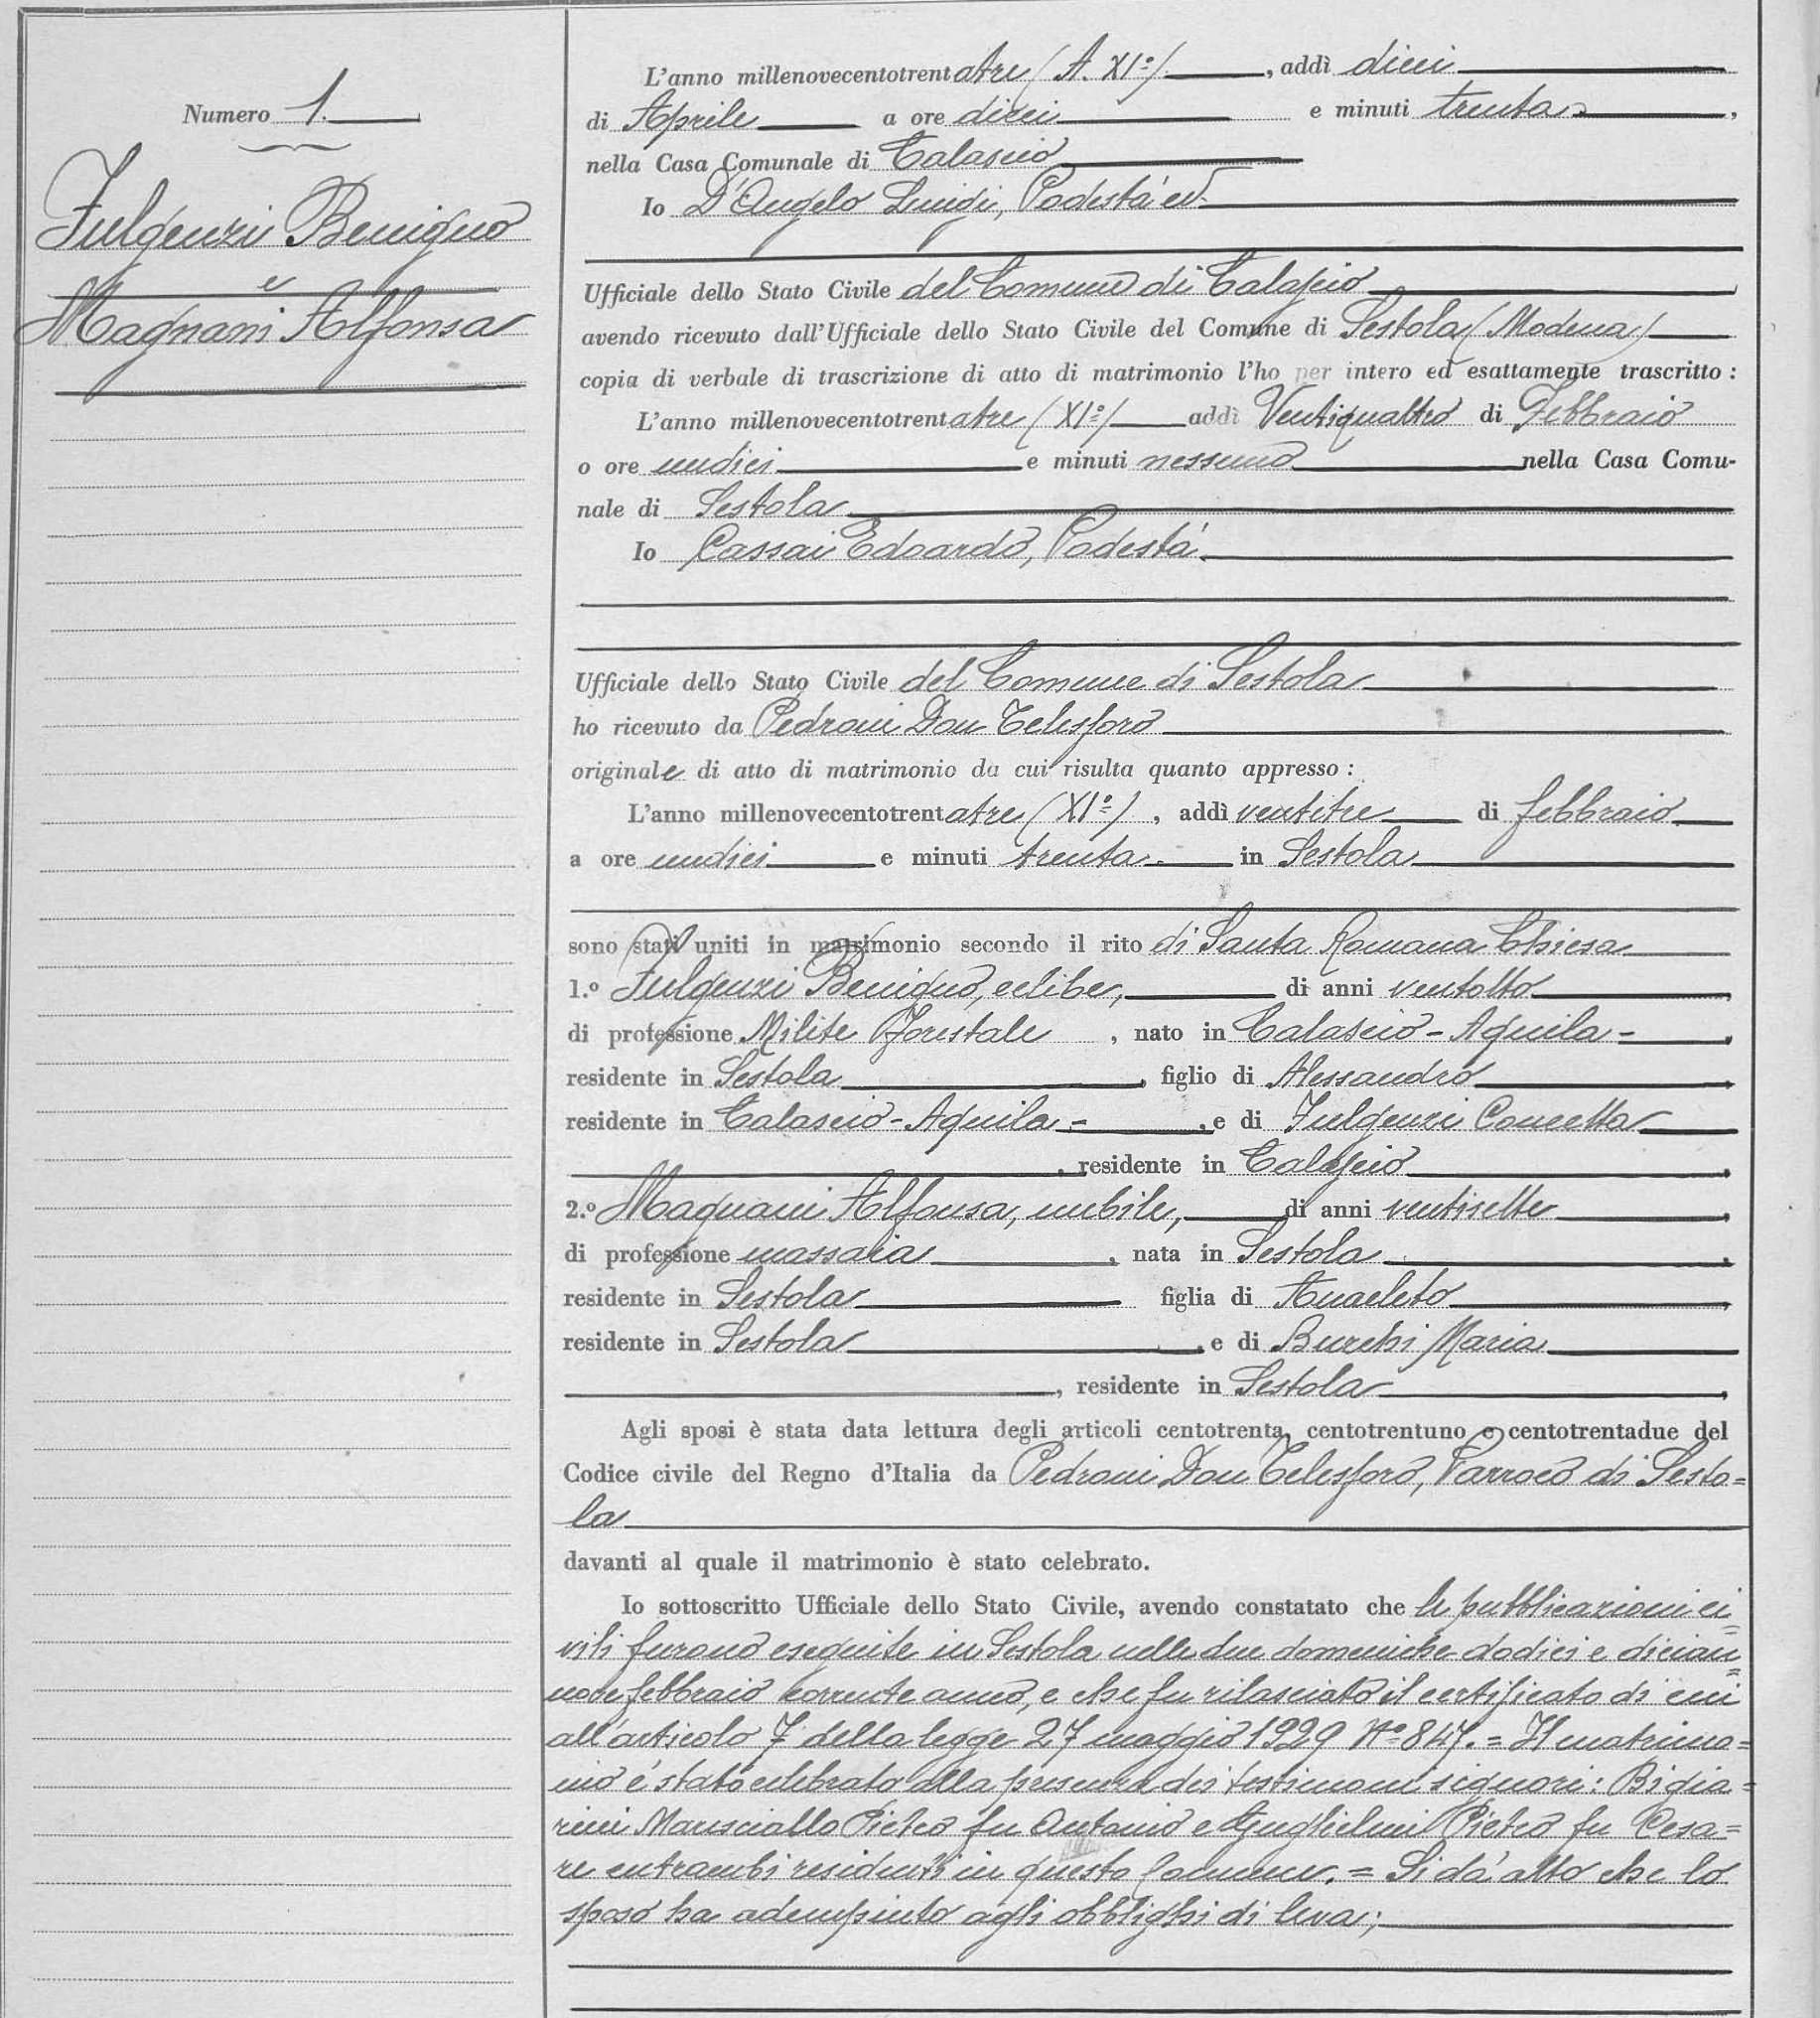 Numero 1.
Fulgenzi Benigno
e
Magnani Alfonsa
L'anno millenovecentotrentatre (A. XI°), addì dieci
di Aprile a ore dieci e minuti trenta,
nella Casa Comunale di Calascio
Io D'Angelo Luigi, Podestà ed
Ufficiale dello Stato Civile del Comune di Calascio
avendo ricevuto dall'Ufficiale dello Stato Civile del Comune di Sestola (Modena)
copia di verbale di trascrizione di atto di matrimonio l'ho per intero ed esattamente trascritto:
L'anno millenovecentotrentatre (XI°) addì Ventiquattro di Febbraio
o ore undici e minuti nessuno nella Casa Comu-
nale di Sestola
Io Cassai Edoardo, Podestà
Ufficiale dello Stato Civile del Comune di Sestola
ho ricevuto da Pedroni Don Telesforo
originale di atto di matrimonio da cui risulta quanto appresso:
L'anno millenovecentotrentatre (XI°), addì ventitre di febbraio
a ore undici e minuti trenta in Sestola
sono stati uniti in matrimonio secondo il rito di Santa Romana Chiesa
1.° Fulgenzi Benigno, celibe, di anni ventotto,
di professione Milite Forestale, nato in Calascio - Aquila -,
residente in Sestola, figlio di Alessandro,
residente in Calascio - Aquila -, e di Fulgenzi Concetta
, residente in Calascio,
2.° Magnani Alfonsa, nubile, di anni ventisette,
di professione massaia, nata in Sestola,
residente in Sestola figlia di Anacleto,
residente in Sestola, e di Burchi Maria
, residente in Sestola,
Agli sposi è stata data lettura degli articoli centotrenta, centotrentuno e centotrentadue del
Codice civile del Regno d'Italia da Pedroni Don Telesforo, Parroco di Sesto=
la
davanti al quale il matrimonio è stato celebrato.
Io sottoscritto Ufficiale dello Stato Civile, avendo constatato che le pubblicazioni ci=
vili furono eseguite in Sestola nelle due domeniche dodici e dician=
nove febbraio corrente anno, e che fu rilasciato il certificato di cui
all'articolo 7 della legge 27 maggio 1929 N° 847. = Il matrimo=
nio è stato celebrato alla presenza dei testimoni signori: Bigia=
rini Maresciallo Pietro fu Antonio e Guglielmi Pietro fu Cesa=
re entrambi residenti in questo Comune. = Si dà atto che lo
sposo ha adempiuto agli obblighi di leva;